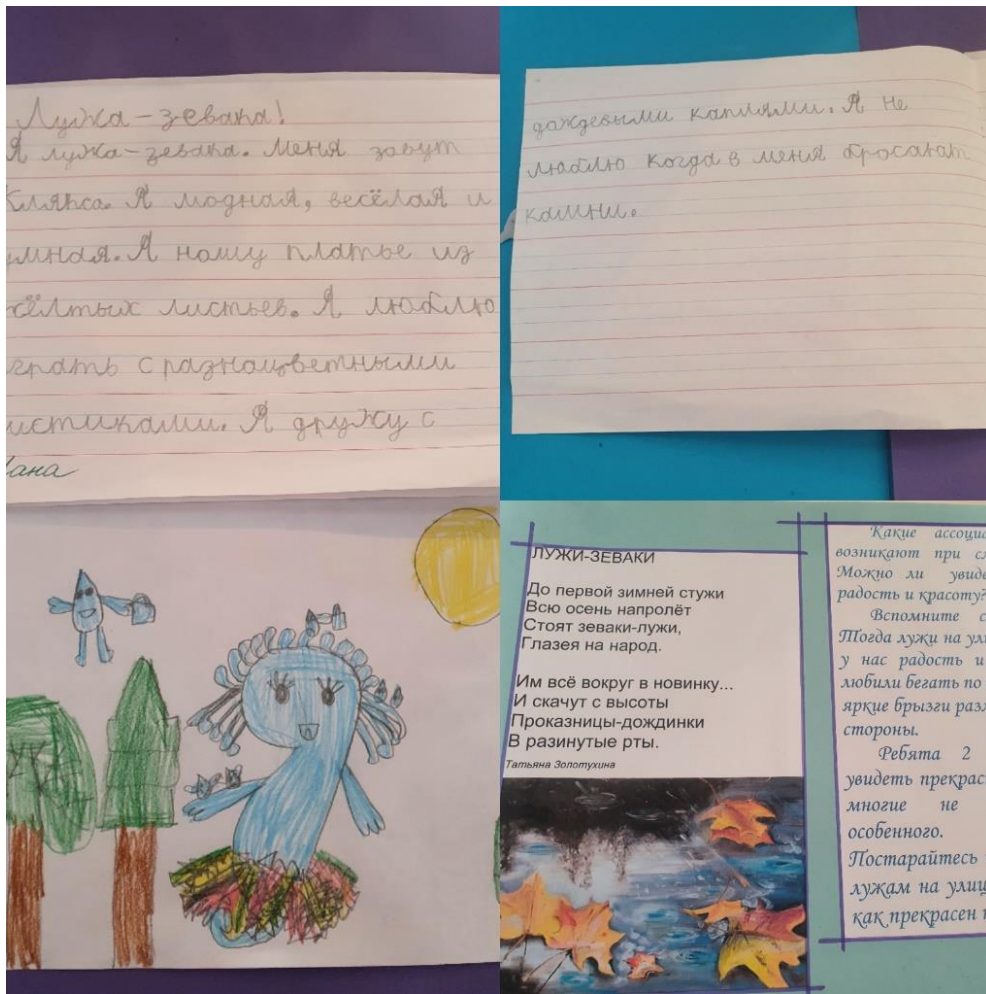 Лужа-зевака!
Я лужа-зевака. Меня зовут
Клякса. Я модная, весёлая и
умная. Я ношу платье из
жёлтых листьев. Я люблю
играть с разноцветными
листиками. Я дружу с
дождевыми каплями. Я не
люблю когда в меня бросают
камни.
ЛУЖИ-ЗЕВАКИ
До первой зимней стужи
Всю осень напролёт
Стоят зеваки-лужи,
Глазея на народ.
Им всё вокруг в новинку...
И скачут с высоты
Проказницы-дождинки
В разинутые рты.
Татьяна Золотухина
Какие ассоциа
возникают при сл
Можно ли увиде
радость и красоту?
Вспомните с
Тогда лужи на ули
у нас радость и
любили бегать по
яркие брызги разл
стороны.
Ребята 2
увидеть прекрас
многие не
особенного.
Постарайтесь
лужам на улиц
как прекрасен